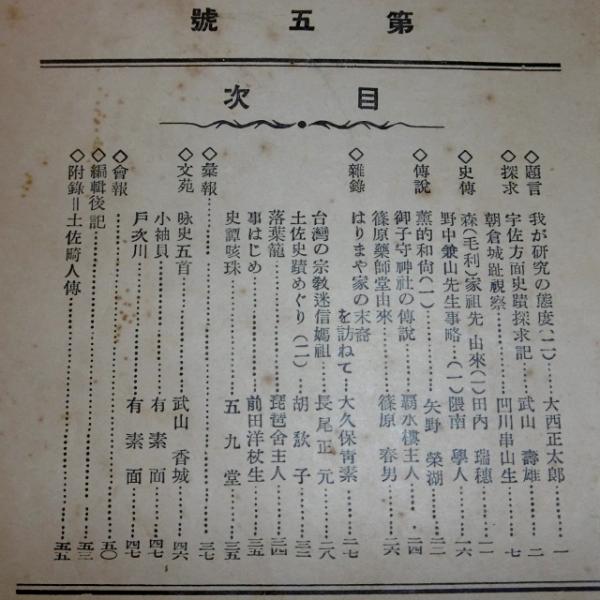 第五號
目次
◇題言 我が研究の態度(二)……大西正太郎……一
◇探求 宇佐方面史蹟探求記……武山壽雄……二
朝倉城趾視察……凹川串山生……七
◇史傳 森(毛利)家祖先由來(一)田内瑞穂……一一
野中兼山先生事略…(一)隈南學人……一六
◇傳說 薰的和尙(一)……矢野榮湖……二二
御子守神社の傳說……覇水樓主人……二四
篠原藥師堂由來……篠原春男……二六
◇雜錄 はりまや家の末裔を訪ねて…大久保靑素……二七
台灣の宗敎迷信媽祖……長尾正元……二八
土佐史蹟めぐり(二)……胡歃子……三二
落葉籠……琵琶舍主人……三四
事はじめ……前田洋杖生……三五
史譚咳珠……五九堂……三五
◇彙報……三七
◇文苑 咏史五首……武山香城……四六
小袖貝……有素面……四七
戶次川……有素面……四七
◇會報……五〇
◇編輯後記……五三
◇附錄＝土佐畸人傳……五五